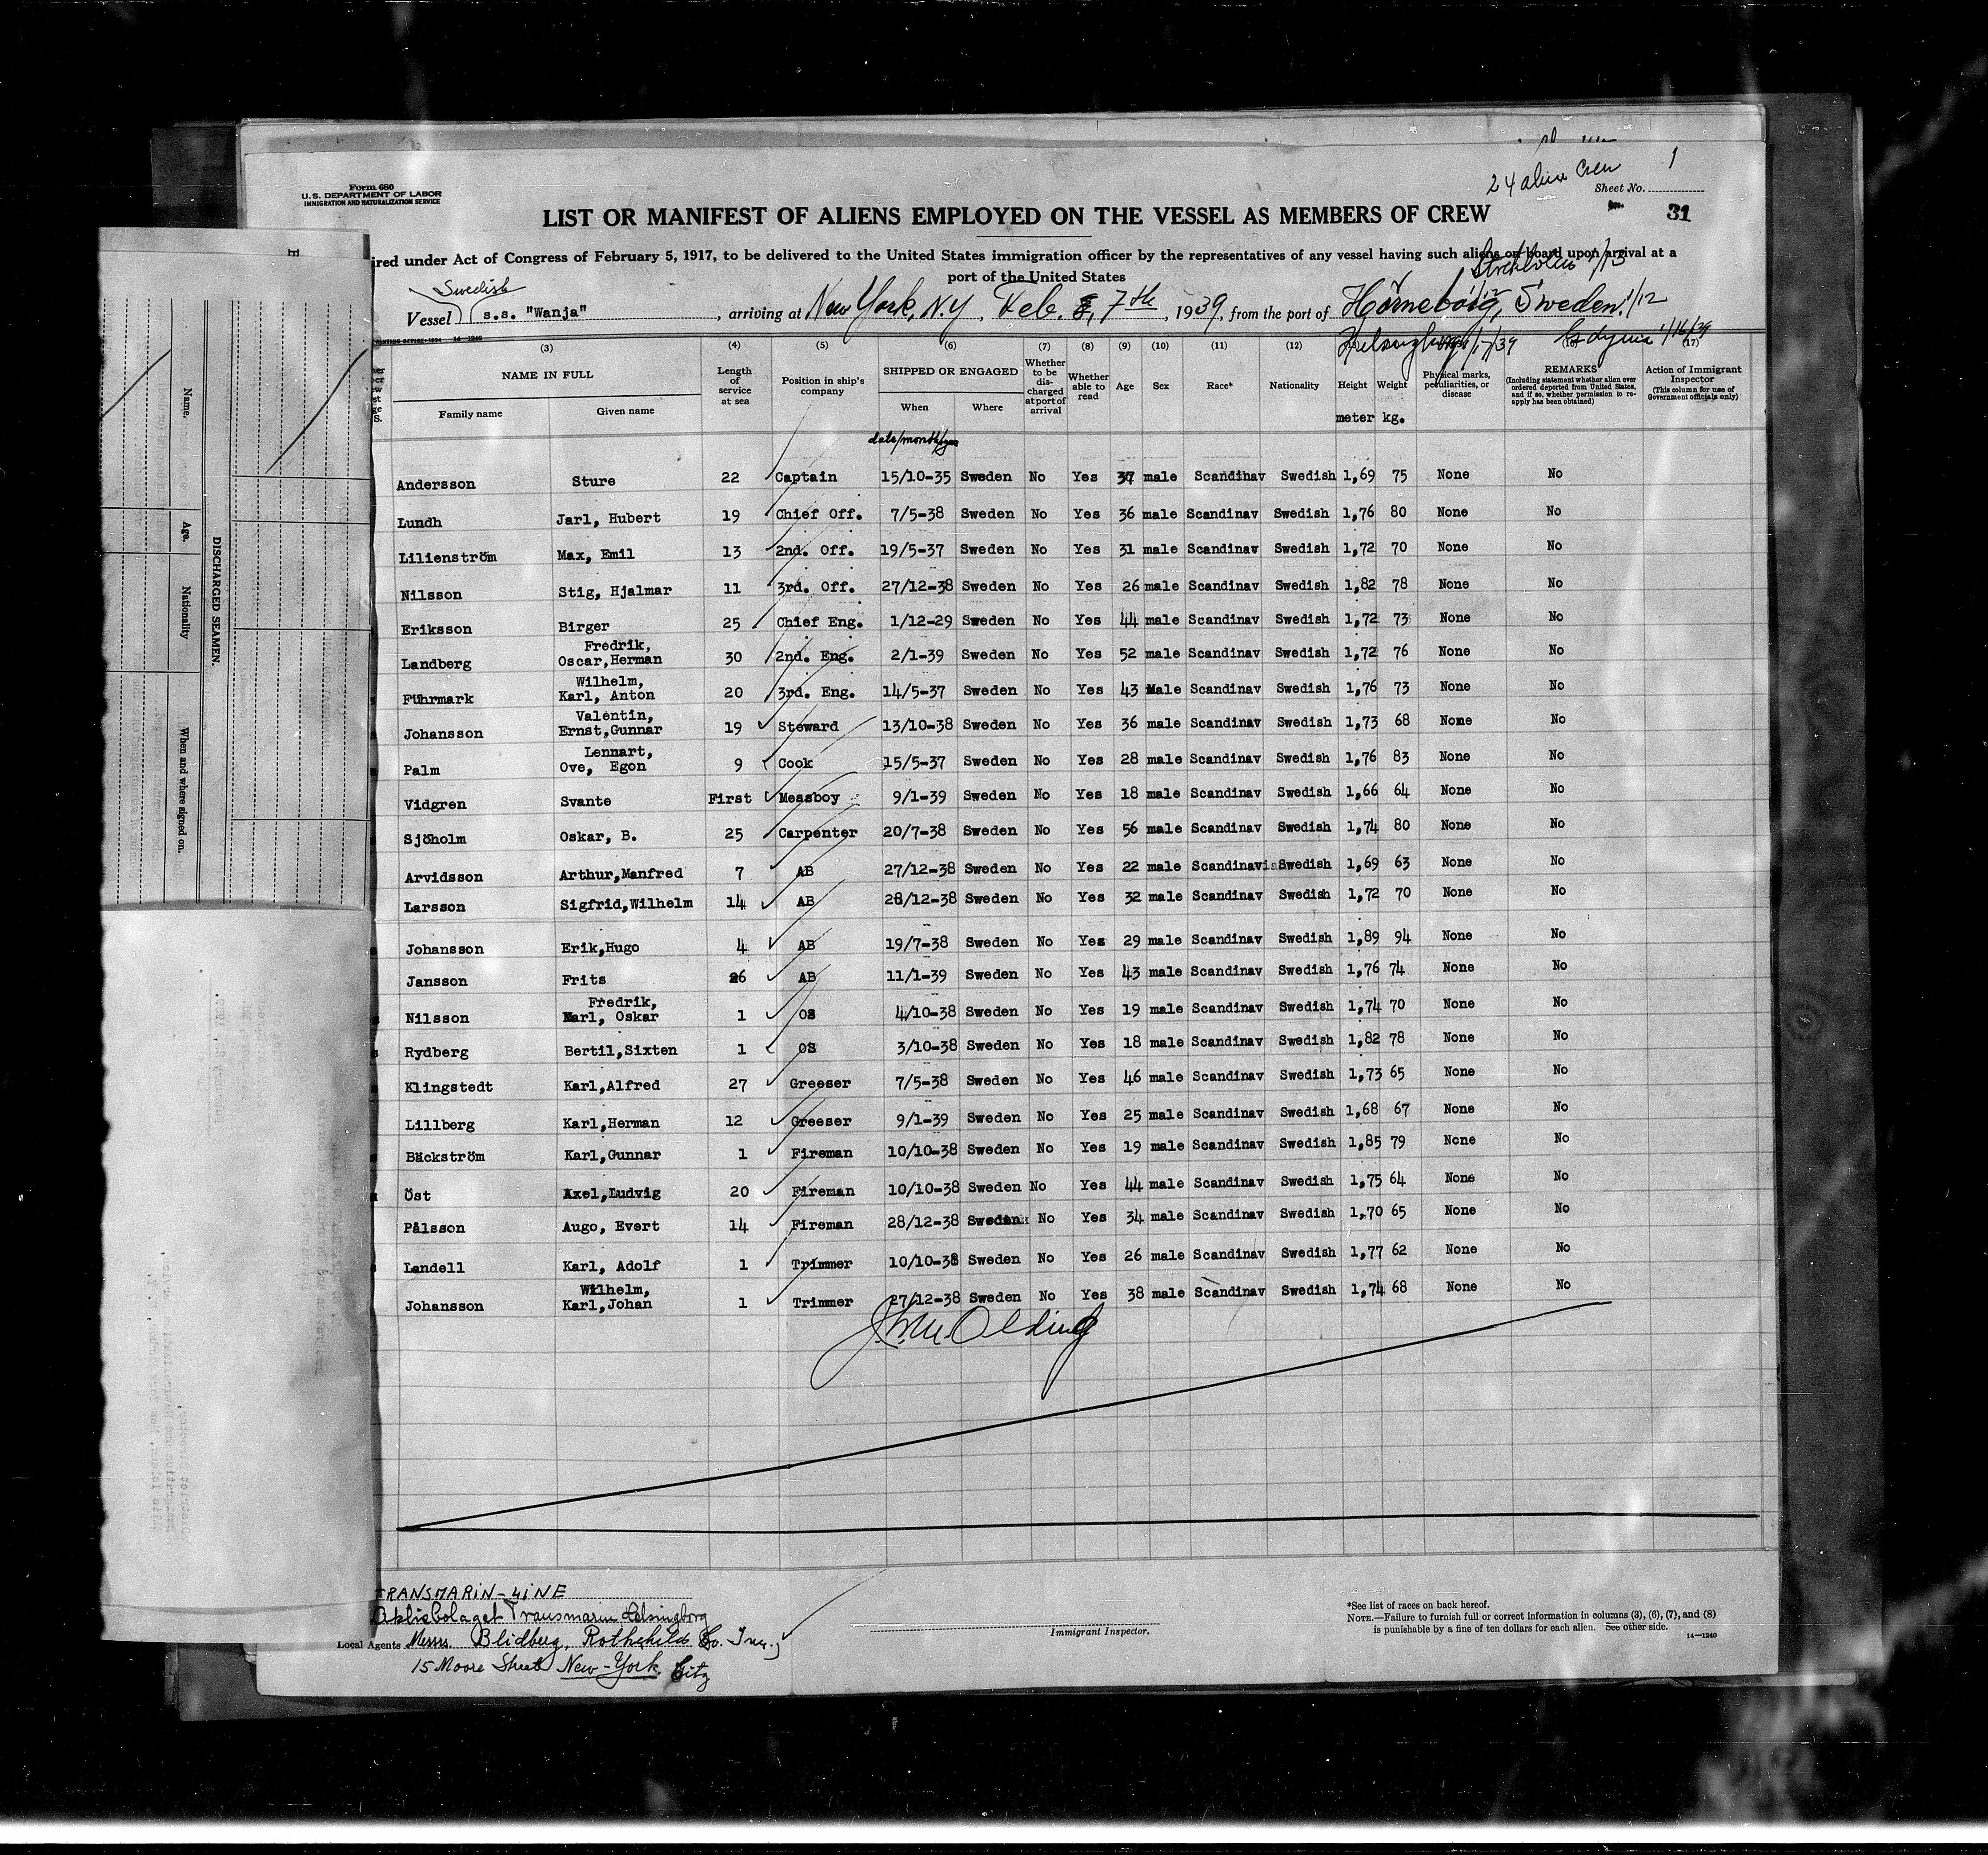 24 alien Crew 1
Form 680
U.S. DEPARTMENT OF LABOR
IMMIGRATION AND NATURALIZATION SERVICE
Sheet No.
31
LIST OR MANIFEST OF ALIENS EMPLOYED ON THE VESSEL AS MEMBERS OF CREW
ired under Act of Congress of February 5, 1917, to be delivered to the United States immigration officer by the representatives of any vessel having such aliens on board upon arrival at a
port of the United States
Swedish
Vessel s.s. "Wanja", arriving at New York, N.Y., Feb. 7th, 1939, from the port of Hörneborg, Sweden 1/12
Gdynia 1/16/39
(3) (4) (5) (6) (7) (8) (9) (10) (11) (12) (17)
NAME IN FULL
Family name Given name
Length of service at sea
Position in ship's company
SHIPPED OR ENGAGED
When Where
Whether to be discharged at port of arrival
Whether able to read
Age Sex Race* Nationality Height Weight
Physical marks, peculiarities, or disease
REMARKS
(Including statement whether alien ever ordered deported from United States, and if so, whether permission to reapply has been obtained)
Action of Immigrant Inspector
(This column for use of Government officials only)
meter kg.
date/month/year
Andersson Sture 22 Captain 15/10-35 Sweden No Yes 37 male Scandinav Swedish 1,69 75 None No
Lundh Jarl, Hubert 19 Chief Off. 7/5-38 Sweden No Yes 36 male Scandinav Swedish 1,76 80 None No
Lilienström Max, Emil 13 2nd. Off. 19/5-37 Sweden No Yes 31 male Scandinav Swedish 1,72 70 None No
Nilsson Stig, Hjalmar 11 3rd. Off. 27/12-38 Sweden No Yes 26 male Scandinav Swedish 1,82 78 None No
Eriksson Birger 25 Chief Eng. 1/12-29 Sweden No Yes 44 male Scandinav Swedish 1,72 73 None No
Fredrik,
Landberg Oscar,Herman 30 2nd. Eng. 2/1-39 Sweden No Yes 52 male Scandinav Swedish 1,72 76 None No
Wilhelm,
Fuhrmark Karl, Anton 20 3rd. Eng. 14/5-37 Sweden No Yes 43 Male Scandinav Swedish 1,76 73 None No
Valentin,
Johansson Ernst,Gunnar 19 Steward 13/10-38 Sweden No Yes 36 male Scandinav Swedish 1,73 68 None No
Lennart,
Palm Ove, Egon 9 Cook 15/5-37 Sweden No Yes 28 male Scandinav Swedish 1,76 83 None No
Vidgren Svante First Messboy 9/1-39 Sweden No Yes 18 male Scandinav Swedish 1,66 64 None No
Sjöholm Oskar, B. 25 Carpenter 20/7-38 Sweden No Yes 56 male Scandinav Swedish 1,74 80 None No
Arvidsson Arthur,Manfred 7 AB 27/12-38 Sweden No Yes 22 male Scandinavia Swedish 1,69 63 None No
Larsson Sigfrid,Wilhelm 14 AB 28/12-38 Sweden No Yes 32 male Scandinav Swedish 1,72 70 None No
Johansson Erik,Hugo 4 AB 19/7-38 Sweden No Yes 29 male Scandinav Swedish 1,89 94 None No
Jansson Frits 26 AB 11/1-39 Sweden No Yes 43 male Scandinav Swedish 1,76 74 None No
Fredrik,
Nilsson Karl, Oskar 1 OS 4/10-38 Sweden No Yes 19 male Scandinav Swedish 1,74 70 None No
Rydberg Bertil,Sixten 1 OS 3/10-38 Sweden No Yes 18 male Scandinav Swedish 1,82 78 None No
Klingstedt Karl,Alfred 27 Greeser 7/5-38 Sweden No Yes 46 male Scandinav Swedish 1,73 65 None No
Lillberg Karl,Herman 12 Greeser 9/1-39 Sweden No Yes 25 male Scandinav Swedish 1,68 67 None No
Bäckström Karl,Gunnar 1 Fireman 10/10-38 Sweden No Yes 19 male Scandinav Swedish 1,85 79 None No
Öst Axel,Ludvig 20 Fireman 10/10-38 Sweden No Yes 44 male Scandinav Swedish 1,75 64 None No
Pålsson Augo, Evert 14 Fireman 28/12-38 Sweden No Yes 34 male Scandinav Swedish 1,70 65 None No
Landell Karl, Adolf 1 Trimmer 10/10-38 Sweden No Yes 26 male Scandinav Swedish 1,77 62 None No
Wilhelm,
Johansson Karl,Johan 1 Trimmer 27/12-38 Sweden No Yes 38 male Scandinav Swedish 1,74 68 None No
Olding
TRANSMARIN-LINE
Aktiebolaget Transmarin Helsingborg
Local Agents Messrs. Blidberg, Rothchild Co. Inc.,
15 Moore Street New-York City
Immigrant Inspector.
*See list of races on back hereof.
NOTE.—Failure to furnish full or correct information in columns (3), (6), (7), and (8)
is punishable by a fine of ten dollars for each alien. See other side.
14—1240
DISCHARGED SEAMEN.
Name. Age. Nationality When and where signed on.